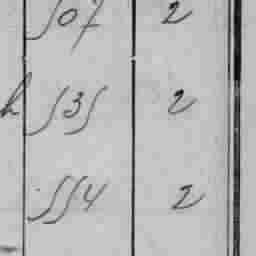 507 2
535 2
554 2